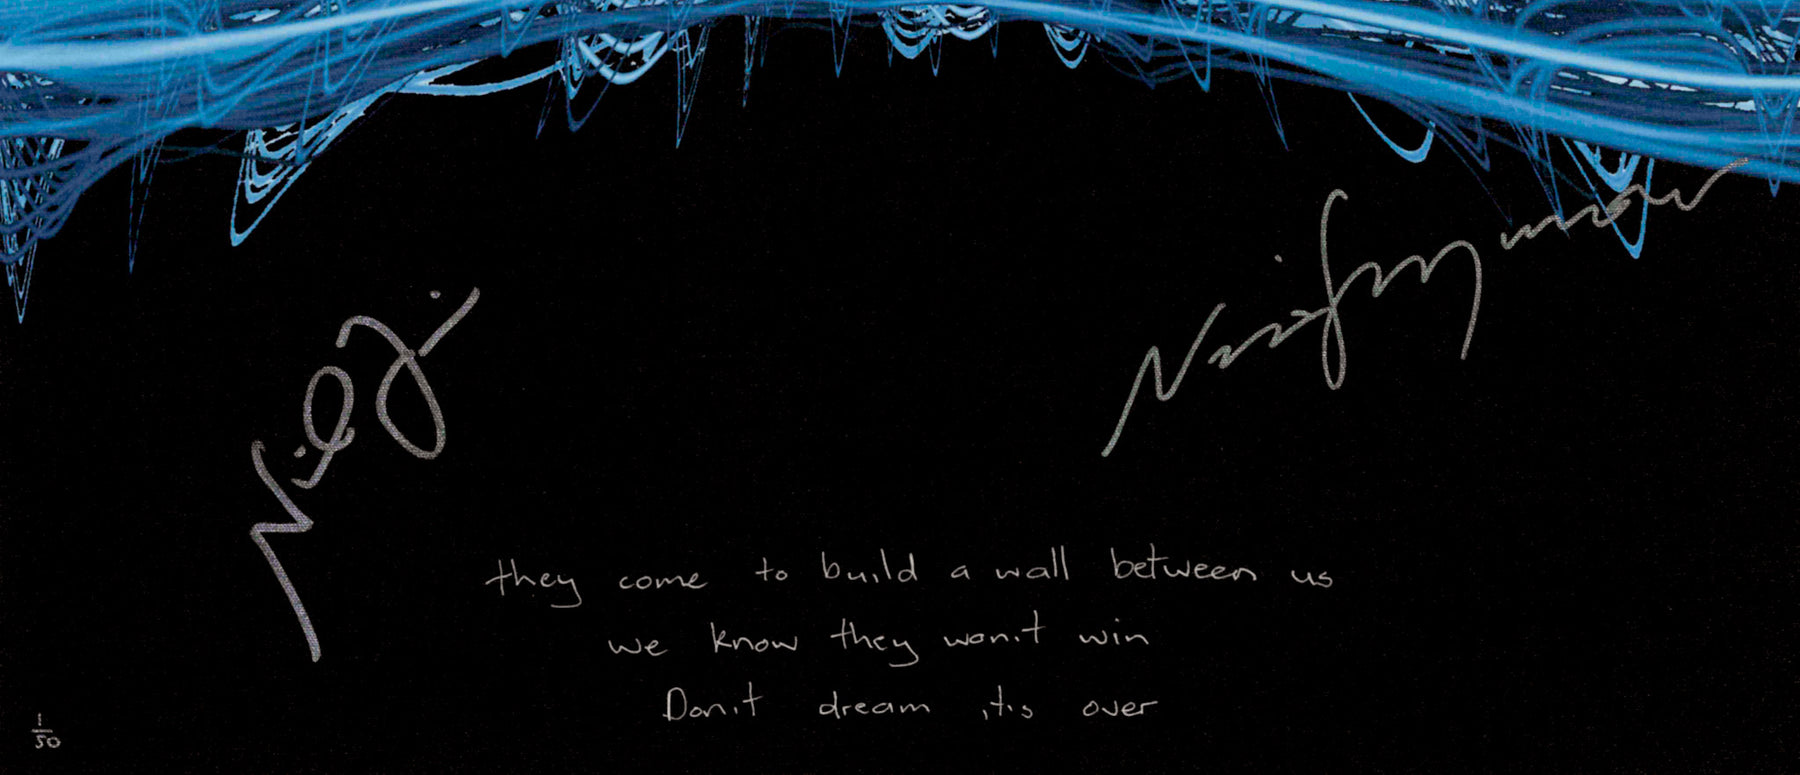 Neil Finn
they come to build a wall between us
we know they won't win
Don't dream it's over
1/50